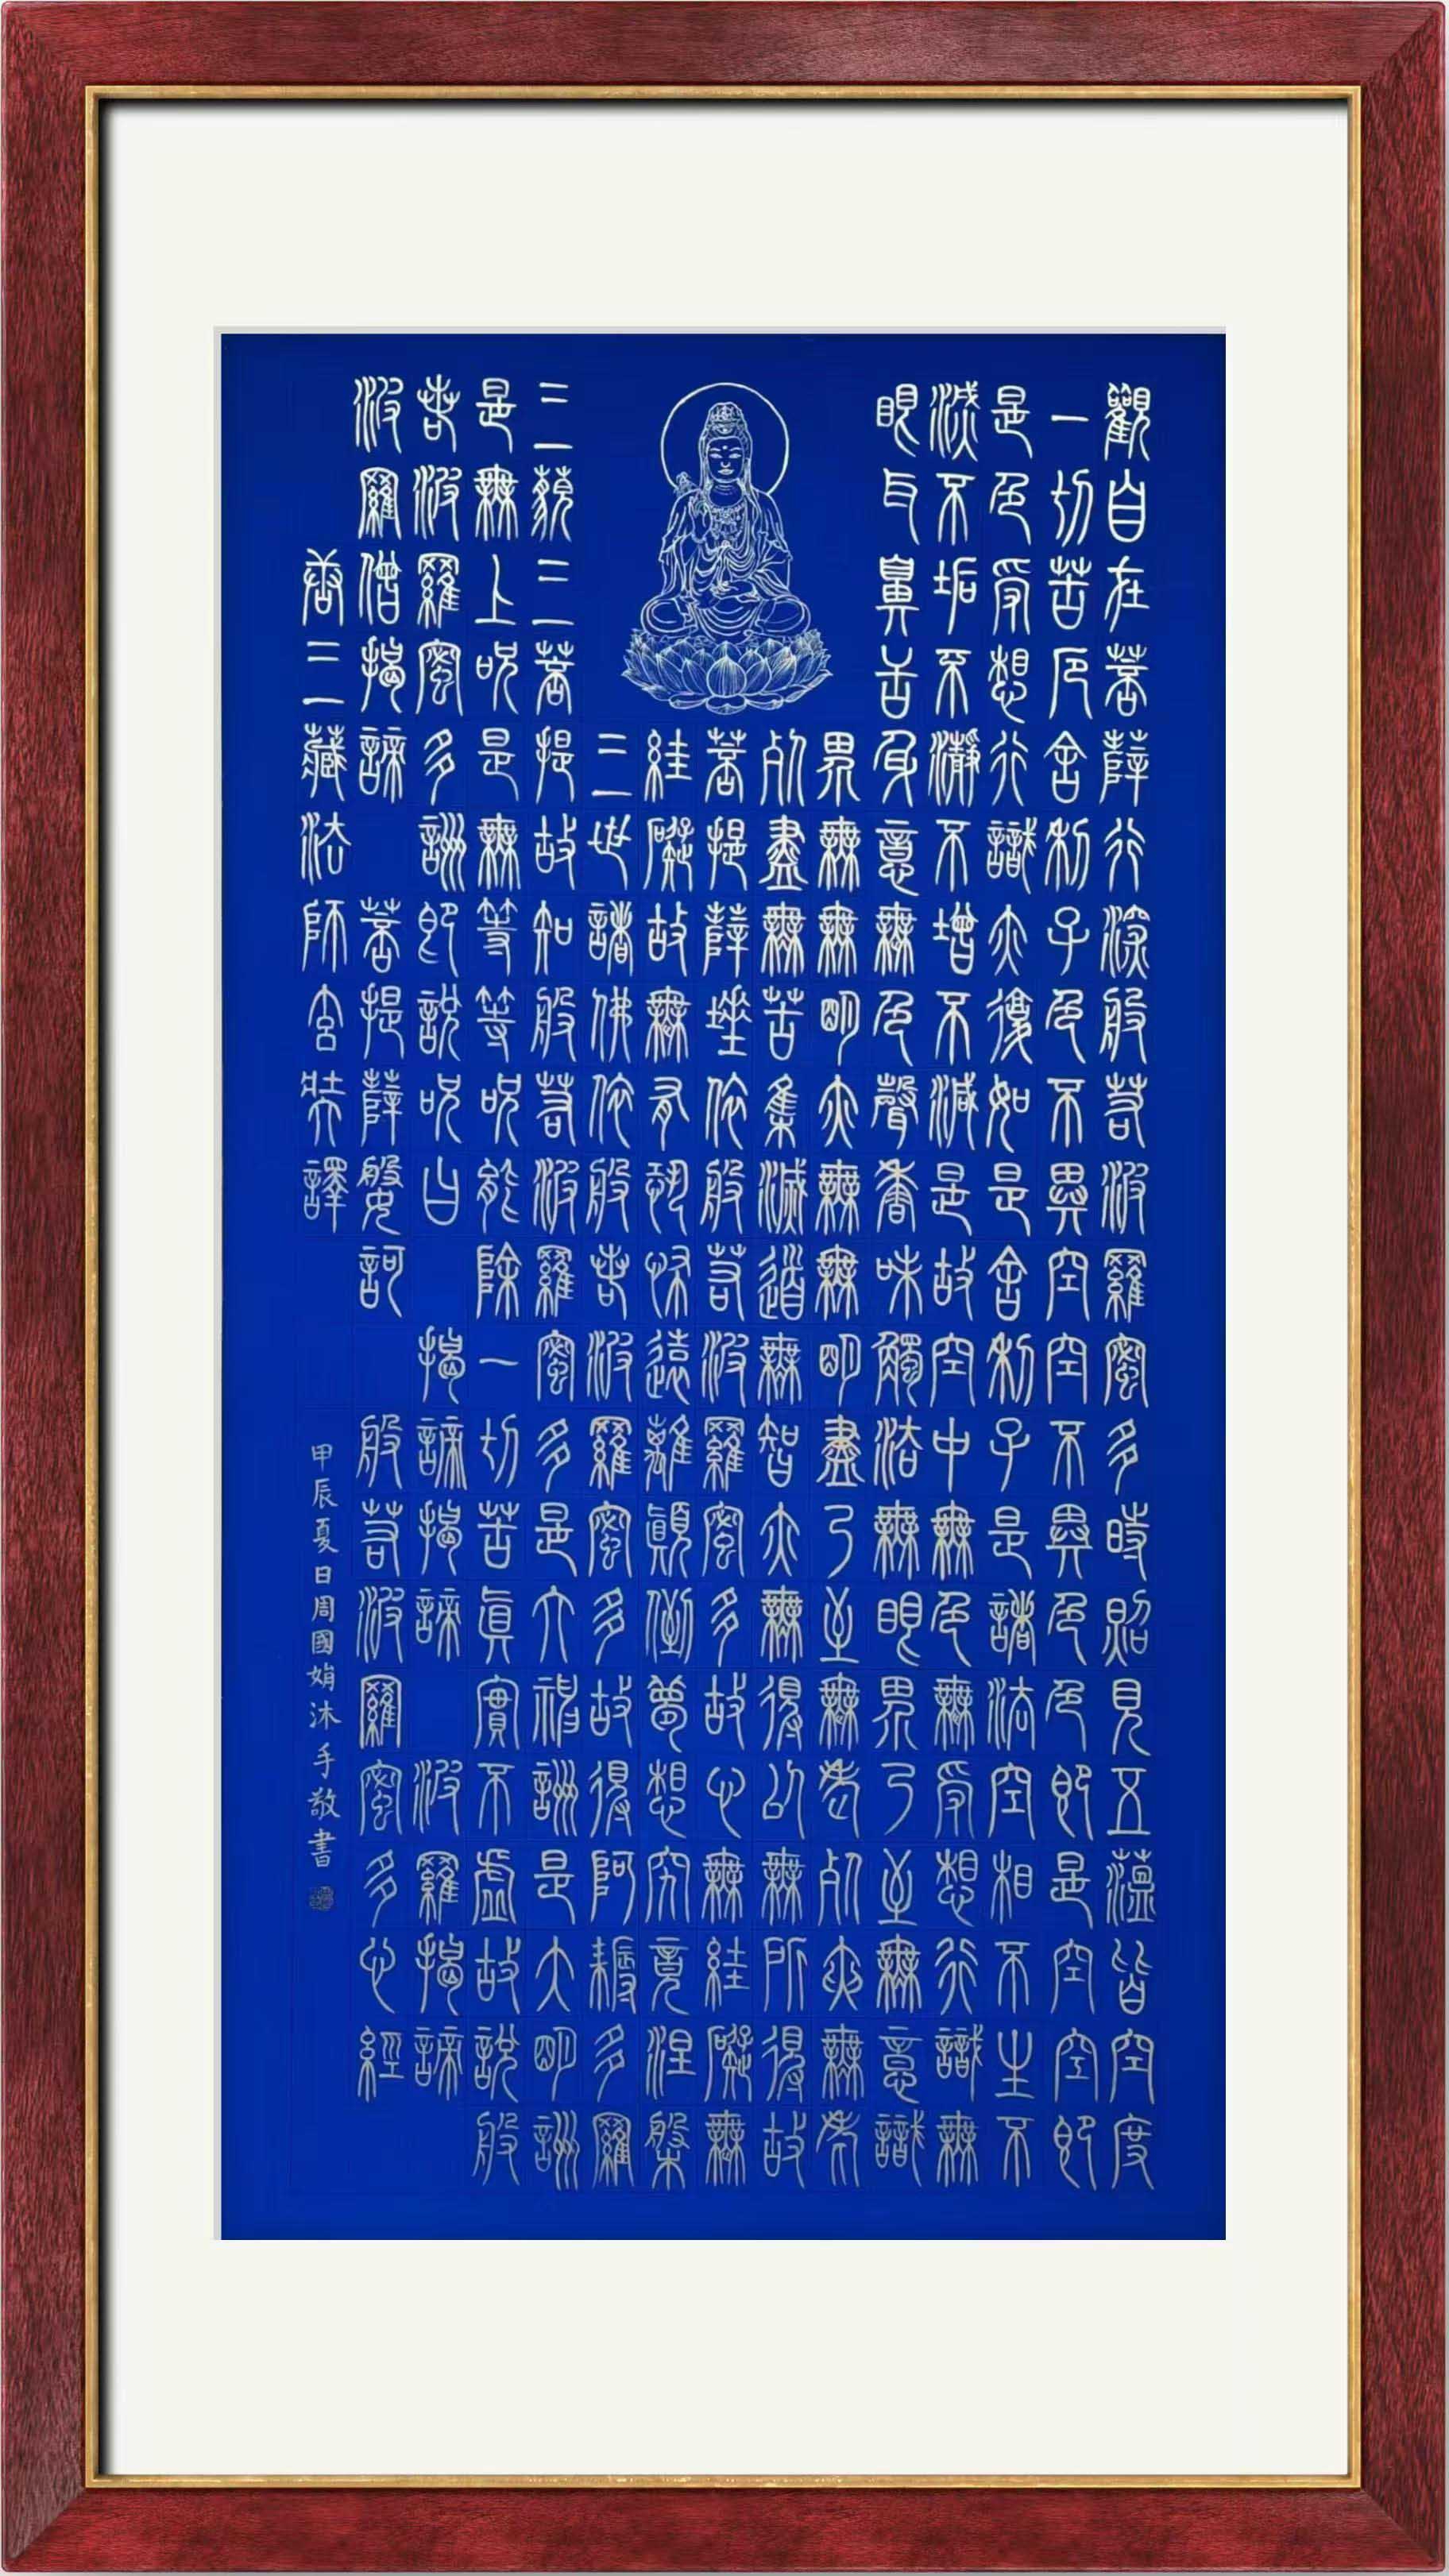 觀自在菩薩行深般若波羅蜜多時照見五蘊皆空度
一切苦厄舍利子色不異空空不異色色即是空空即
是色受想行識亦復如是舍利子是諸法空相不生不
滅不垢不瀞不增不減是故空中無色無受想行識無
眼耳鼻舌身意無色聲香味觸法無眼界乃至無意識
界無無明亦無無明盡乃至無老死亦無老
死盡無苦集滅道無智亦無得以無所得故
菩提薩埵依般若波羅蜜多故心無絓礙無
絓礙故無有恐怖遠離顛倒夢想究竟涅槃
三世諸佛依般若波羅蜜多故得阿耨多羅
三藐三菩提故知般若波羅蜜多是大神詶是大明詶
是無上呪是無等等呪能除一切苦真實不虛故說般
若波羅蜜多詶即說呪曰 揭諦揭諦 波羅揭諦
波羅僧揭諦 菩提薩婆訶 般若波羅蜜多心經
唐三藏法師玄奘譯
甲辰夏日周國娟沐手敬書